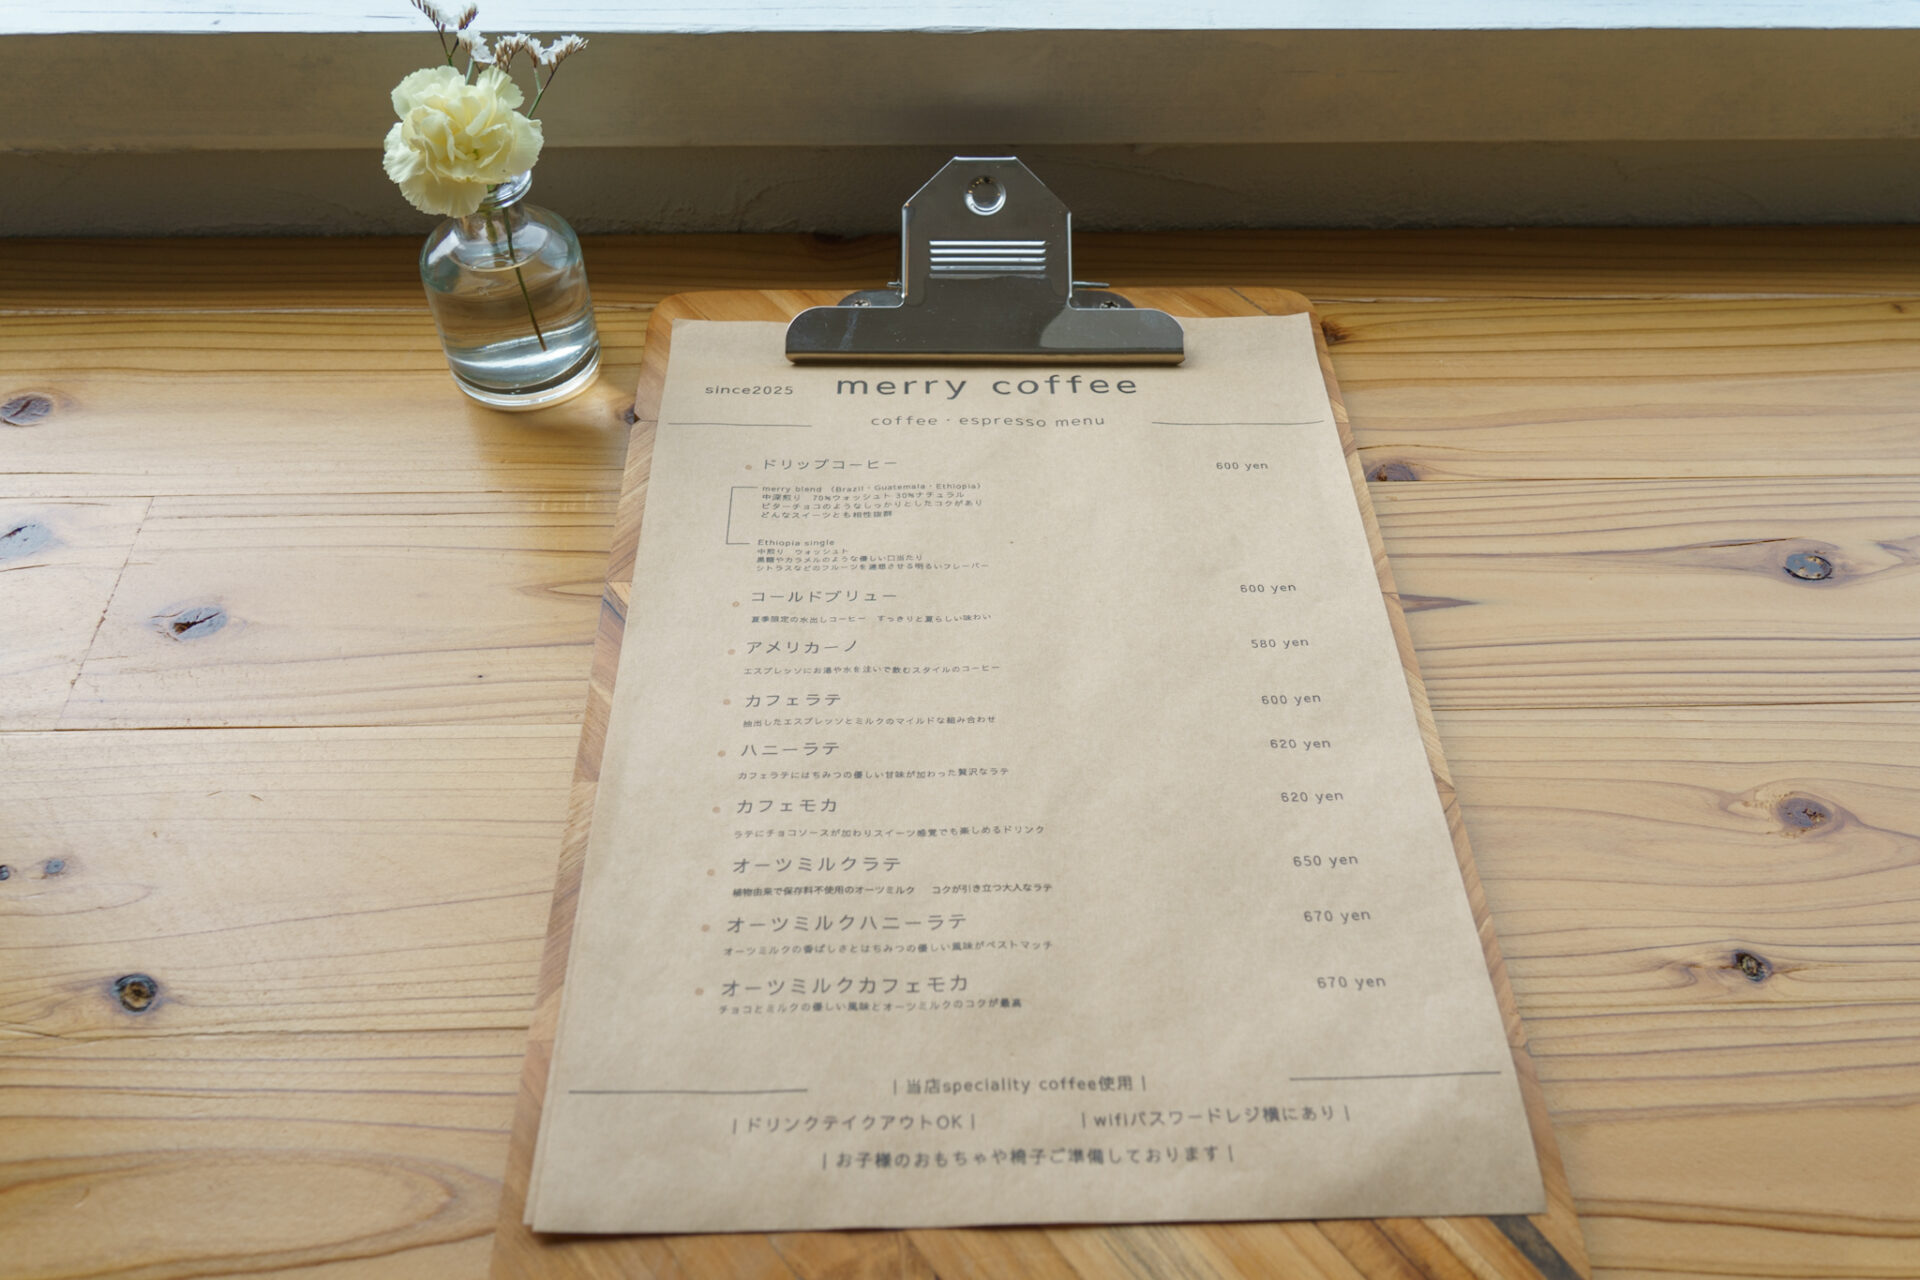 since2025 merry coffee
coffee・espresso menu
ドリップコーヒー 600 yen
merry blend （Brazil・Guatemala・Ethiopia）
中深煎り 70%ウォッシュト 30%ナチュラル
ビターチョコのようなしっかりとしたコクがあり
どんなスイーツとも相性抜群
Ethiopia single
中煎り ウォッシュト
黒糖やカラメルのような優しい口当たり
シトラスなどのフルーツを連想させる明るいフレーバー
コールドブリュー 600 yen
夏季限定の水出しコーヒー すっきりと夏らしい味わい
アメリカーノ 580 yen
エスプレッソにお湯や水を注いで飲むスタイルのコーヒー
カフェラテ 600 yen
抽出したエスプレッソとミルクのマイルドな組み合わせ
ハニーラテ 620 yen
カフェラテにはちみつの優しい甘味が加わった贅沢なラテ
カフェモカ 620 yen
ラテにチョコソースが加わりスイーツ感覚でも楽しめるドリンク
オーツミルクラテ 650 yen
植物由来で保存料不使用のオーツミルク コクが引き立つ大人なラテ
オーツミルクハニーラテ 670 yen
オーツミルクの香ばしさとはちみつの優しい風味がベストマッチ
オーツミルクカフェモカ 670 yen
チョコとミルクの優しい風味とオーツミルクのコクが最高
| 当店speciality coffee使用 |
| ドリンクテイクアウトOK | | wifiパスワードレジ横にあり |
| お子様のおもちゃや椅子ご準備しております |